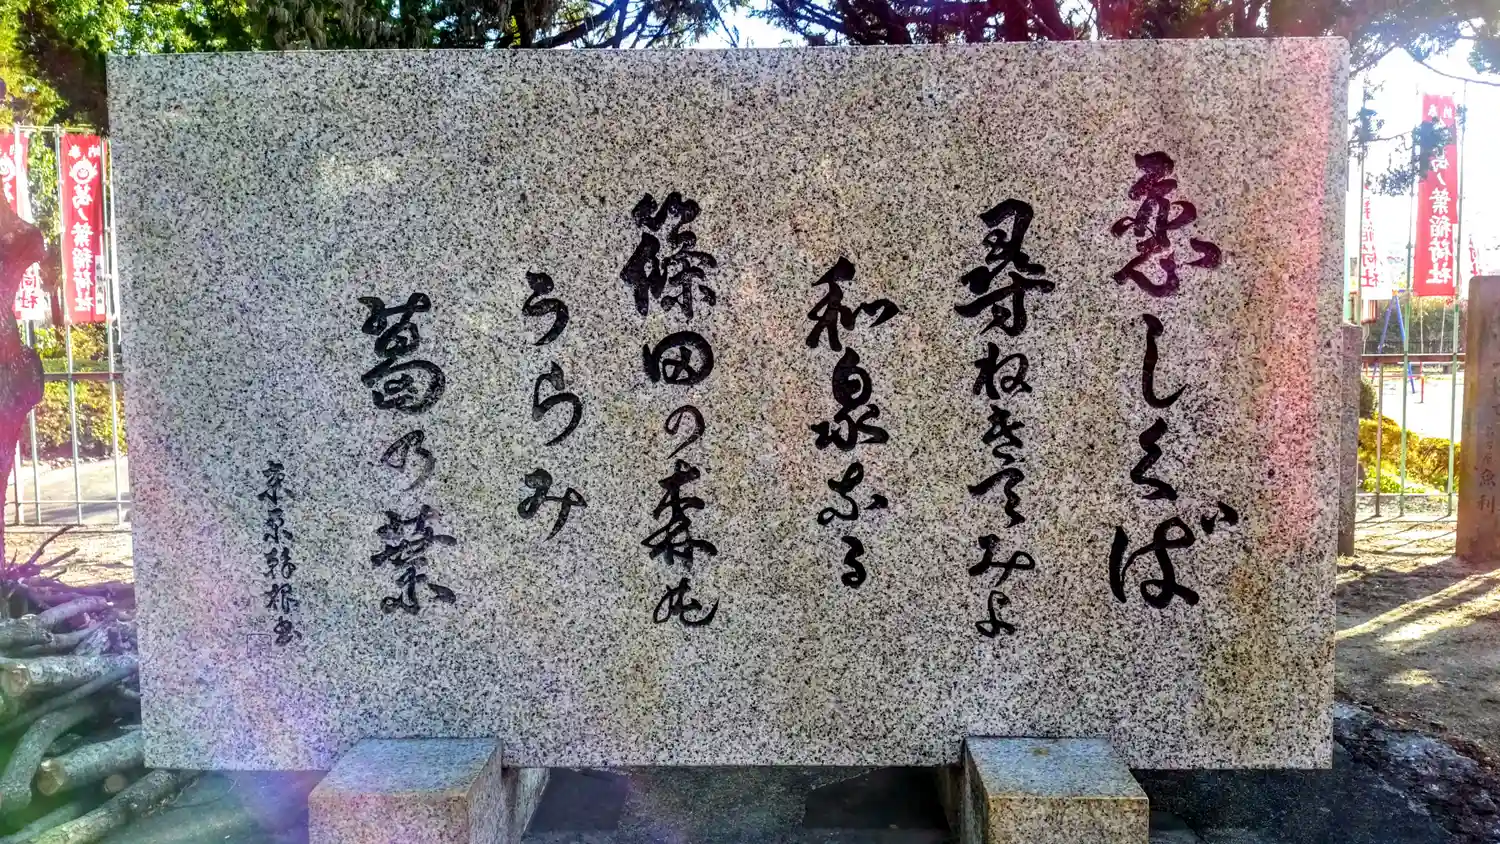 恋しくば
尋ねきてみよ
和泉なる
篠田の森の
うらみ
葛乃葉
奉納
葛ノ葉稲荷社
葛ノ葉稲荷社